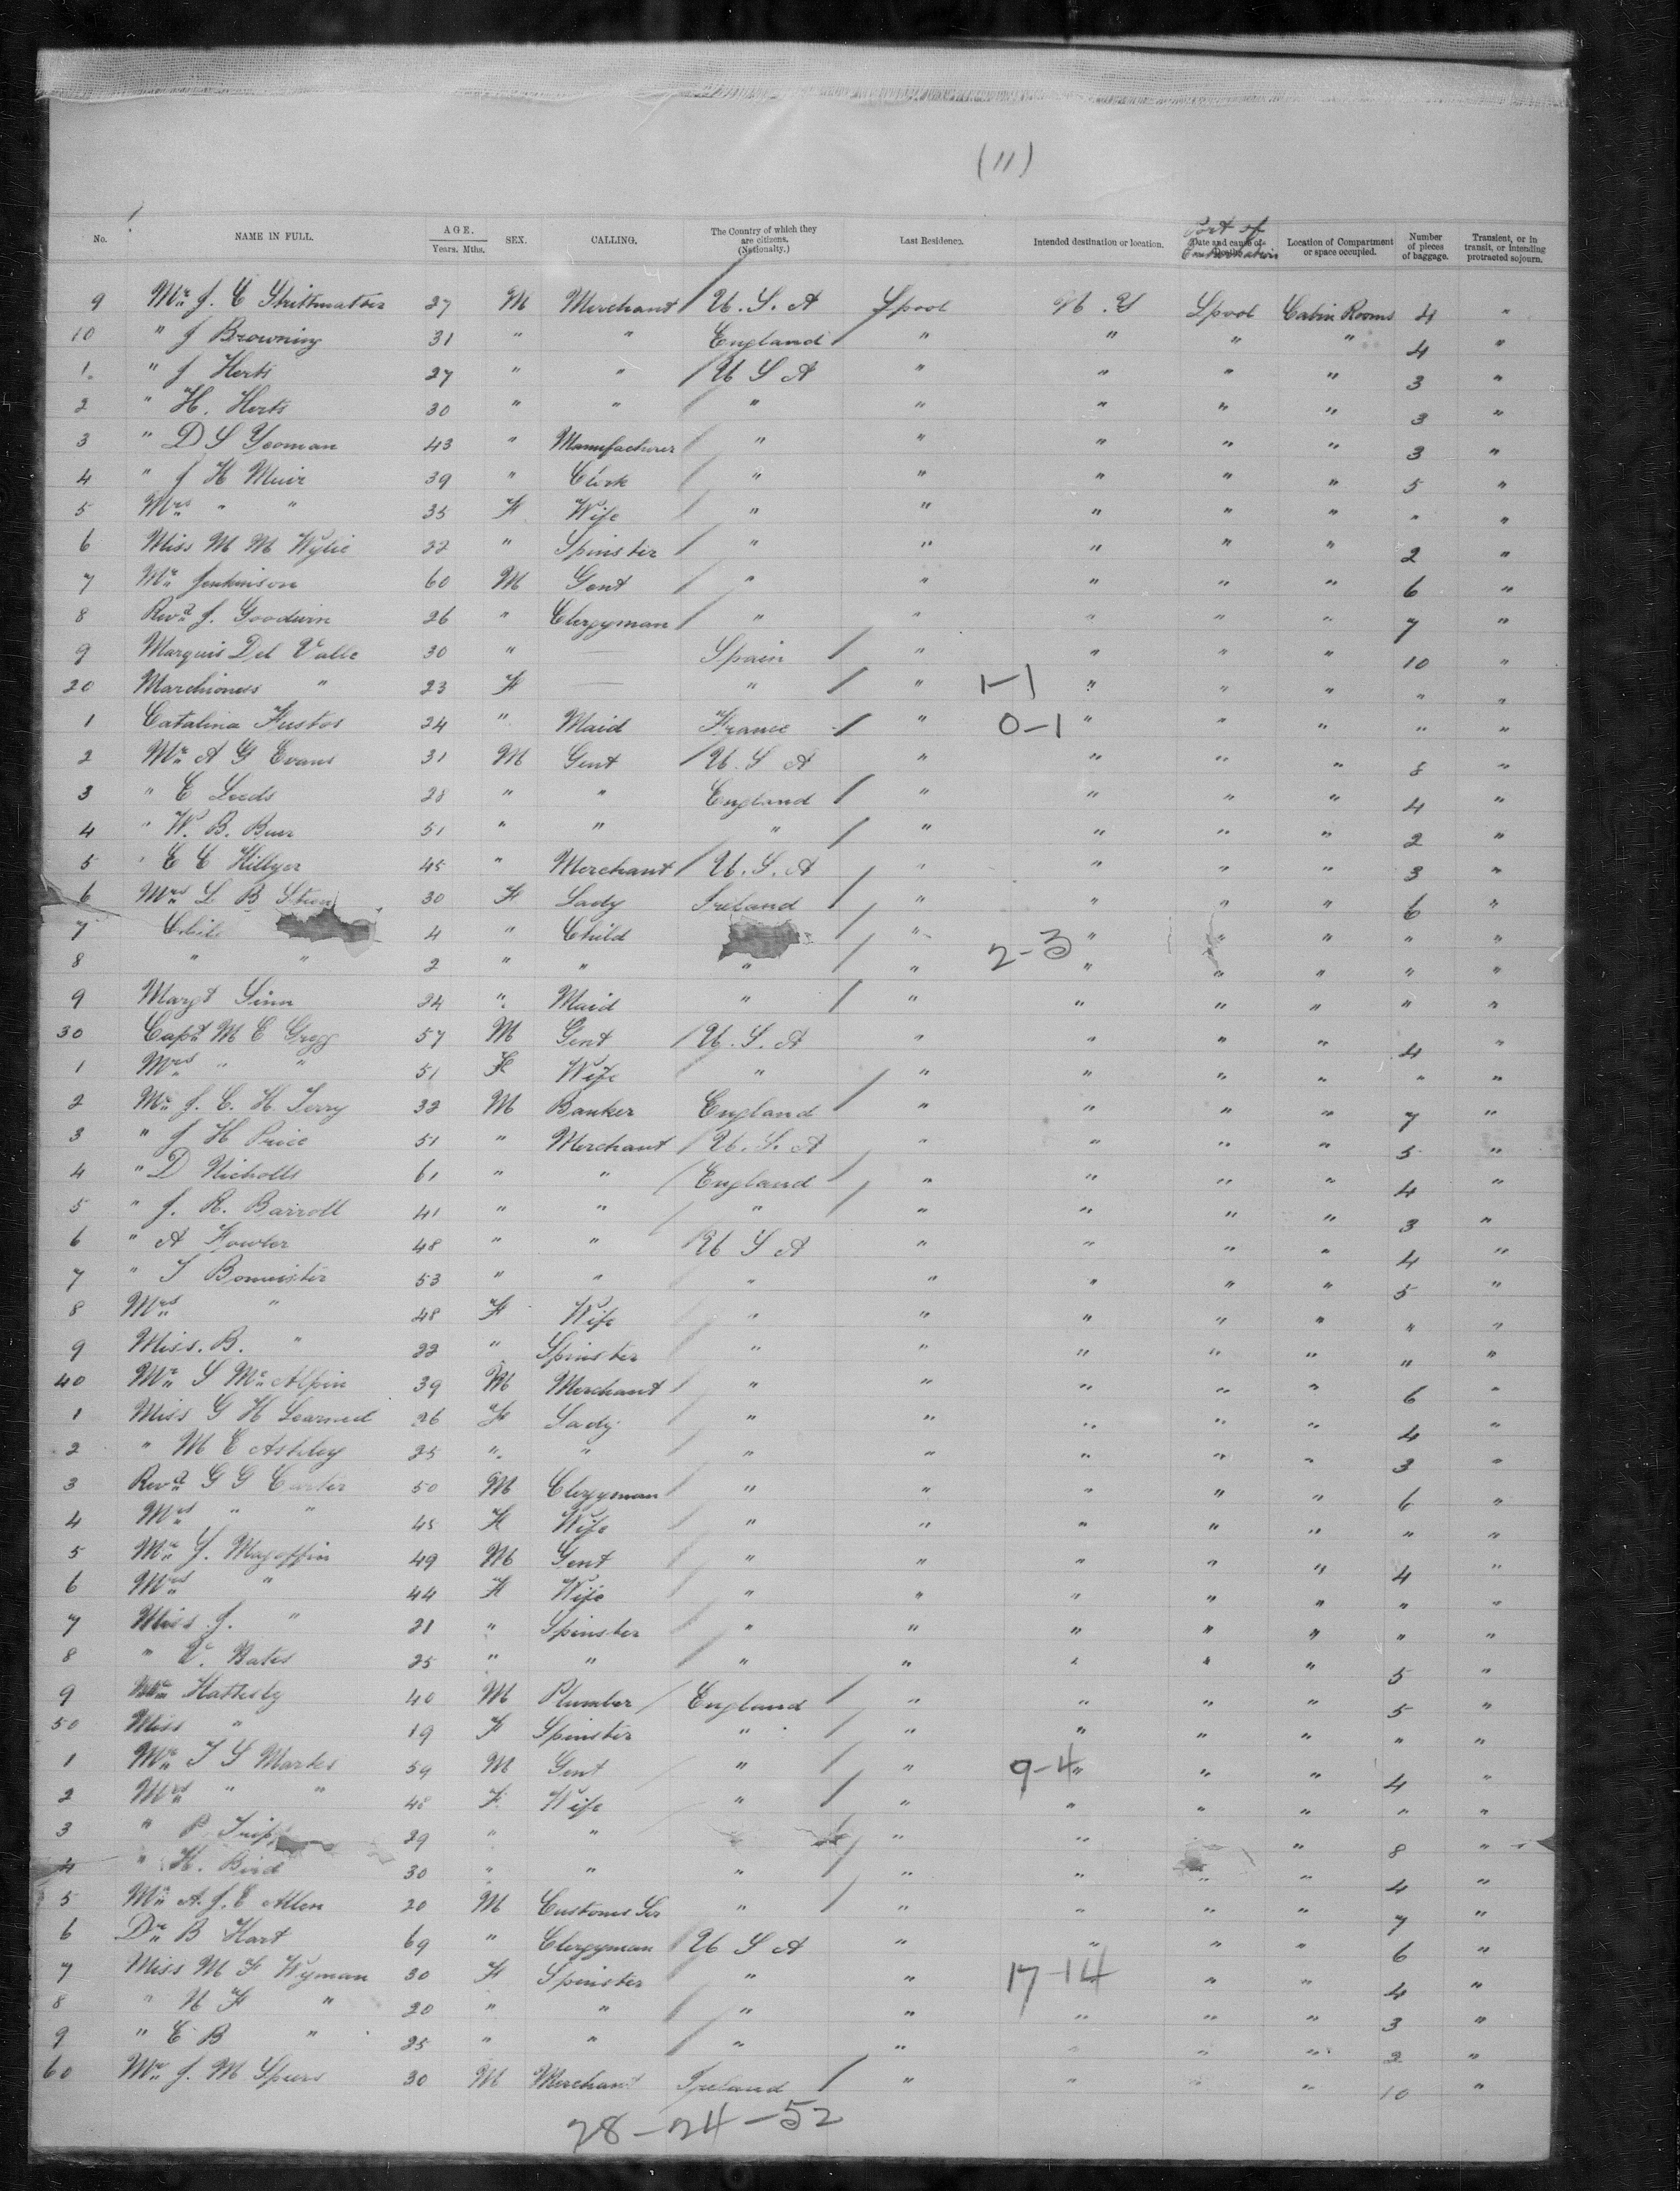 (11)
Port of
Embarkation
No. NAME IN FULL. AGE. Years. Mths. SEX. CALLING. The Country of which they are citizens. (Nationality.) Last Residence. Intended destination or location. Date and cause of Location of Compartment or space occupied. Number of pieces of baggage. Transient, or in transit, or intending protracted sojourn.
9 Mr J. C Shittmatter 27 M Merchant U.S.A Lpool N.Y Lpool Cabin Rooms 4 "
10 " J Browning 31 " " England " " " " 4 "
1 " J Herts 27 " " U S A " " " " 3 "
2 " H. Herts 30 " " " " " " " 3 "
3 " D S Yeoman 43 " Manufacturer " " " " " 3 "
4 " J H Muir 39 " Clerk " " " " " 5 "
5 Mrs " " 35 F Wife " " " " " " "
6 Miss M M Wylie 22 " Spinster " " " " " 2 "
7 Mr Jenkinson 60 M Gent " " " " " 6 "
8 Revd J. Goodwin 26 " Clergyman " " " " " 7 "
9 Marquis Del Valle 30 " — Spain " " " " 10 "
20 Marchioness " 23 F — " " 1-1 " " " " "
1 Catalina Fustos 24 " Maid France " 0-1 " " " " "
2 Mr A G Evans 31 M Gent U.S A " " " " 8 "
3 " E Leeds 28 " " England " " " " 4 "
4 " W. B. Burr 51 " " " " " " " 2 "
5 " E C Hillyer 45 " Merchant U.S.A " " " " 3 "
6 Mrs L B 30 F Lady Ireland " " " " 6 "
7 4 " Child " " " " " "
8 " " 2 " " " " 2-3 " " " " "
9 Margt Sinn 24 " Maid " " " " " " "
30 Capt M E Gregg 57 M Gent U.S.A " " " " 4 "
1 Mrs " " 51 F Wife " " " " " " "
2 Mr J. C. H. Terry 32 M Banker England " " " " 7 "
3 " J H Price 51 " Merchant U.S.A " " " " 5 "
4 " D Nicholls 61 " " England " " " " 4 "
5 " J. R. Barroll 41 " " " " " " " 3 "
6 " A Fowler 48 " " U S A " " " " 4 "
7 " T Bomeister 53 " " " " " " " 5 "
8 Mrs " 48 F Wife " " " " " " "
9 Miss. B. " 22 " Spinster " " " " " " "
40 Mr S McAlpin 39 M Merchant " " " " " 6 "
1 Miss G H Learned 26 F Lady " " " " " 4 "
2 " M E Ashley 25 " " " " " " " 3 "
3 Revd G G Carter 50 M Clergyman " " " " " 6 "
4 Mrs " " 45 F Wife " " " " " " "
5 Mr S. Magoffin 49 M Gent " " " " " 4 "
6 Mrs " 44 F Wife " " " " " " "
7 Miss J. " 21 " Spinster " " " " " " "
8 " Bates 25 " " " " " " " 5 "
9 Mr Hatterly 40 M Plumber England " " " " 5 "
50 Miss " 19 F Spinster " " " " " " "
1 Mr T S Marks 59 M Gent " " 9-4 " " " 4 "
2 Mrs " " 48 F Wife " " " " " " "
3 " P. 29 " " " " " 8 "
4 " H. Bird 30 " " " " " " " 4 "
5 Mr A. J. E Allen 20 M Customs Ser " " " " " 7 "
6 Dr B Hart 69 " Clergyman U S A " " " " 6 "
7 Miss M F Wyman 30 F Spinster " " 17-14 " " 4 "
8 " N F " 20 " " " " " " " 3 "
9 " E B " 25 " " " " " " " 2 "
60 Mr J. M Speers 30 M Merchant Ireland " " " " 10 "
28-24-52